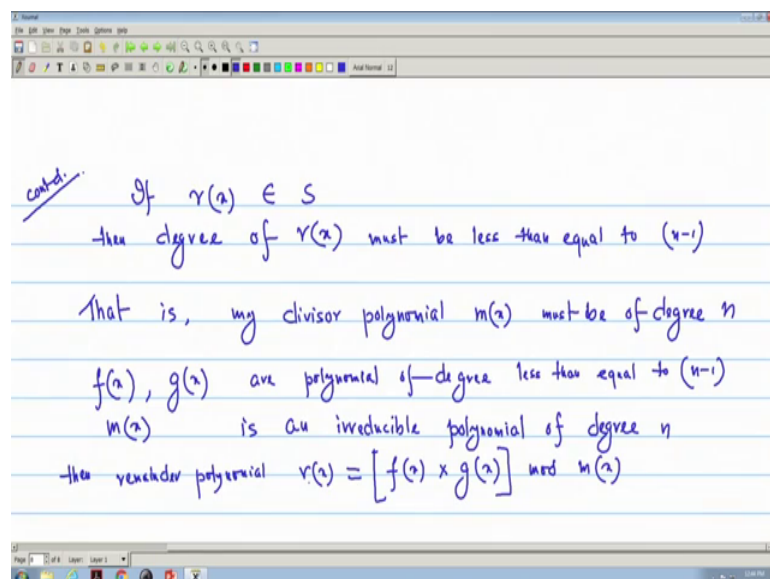 Journal
File Edit View Page Tools Options Help
Arial Normal 12
contd.
If r(x) ∈ S
then degree of r(x) must be less than equal to (n-1)
That is, my divisor polynomial m(x) must be of degree n
f(x), g(x) are polynomial of degree less than equal to (n-1)
m(x) is an irreducible polynomial of degree n
then remainder polynomial r(x) = [f(x) × g(x)] mod m(x)
Page 8 of 8 Layer: Layer 1